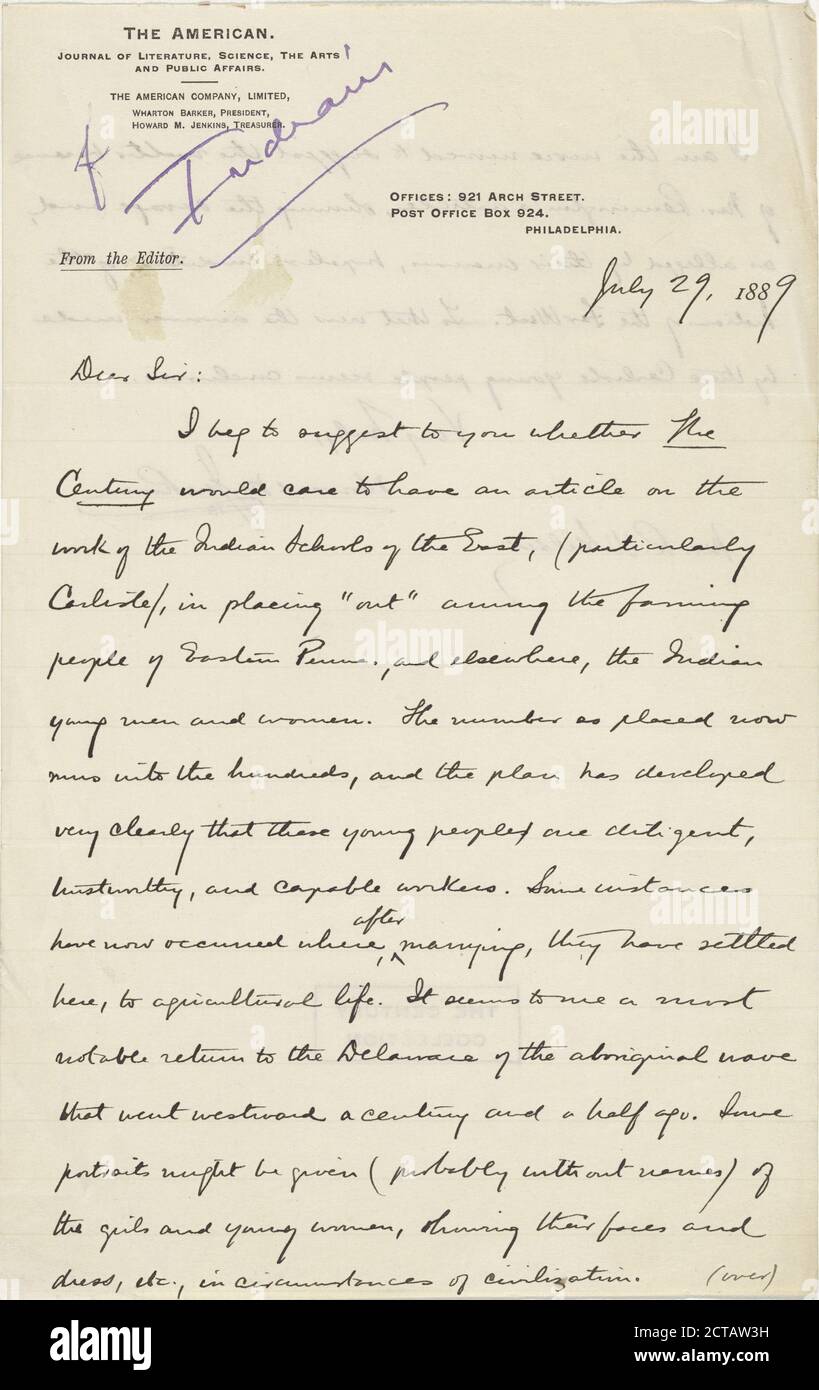 THE AMERICAN.
JOURNAL OF LITERATURE, SCIENCE, THE ARTS
AND PUBLIC AFFAIRS.
THE AMERICAN COMPANY, LIMITED,
WHARTON BARKER, PRESIDENT,
HOWARD M. JENKINS, TREASURER.
Indians
OFFICES: 921 ARCH STREET.
POST OFFICE BOX 924.
PHILADELPHIA.
From the Editor.
July 29, 1889
Dear Sir:
I beg to suggest to you whether The
Century would care to have an article on the
work of the Indian Schools of the East, (particularly
Carlisle), in placing "out" among the farming
people of Eastern Penna., and elsewhere, the Indian
young men and women. The number so placed now
runs into the hundreds, and the plan has developed
very clearly that these young people are diligent,
trustworthy, and capable workers. Some instances
have now occurred where, after marrying, they have settled
here, to agricultural life. It seems to me a most
notable return to the Delaware of the aboriginal wave
that went westward a century and a half ago. Some
portraits might be given (probably without names) of
the girls and young women, showing their faces and
dress, etc., in circumstances of civilization. (over)
THE CENTURY
COLLECTION
alamy
alamy
alamy
alamy
Image ID: 2CTAW3H
www.alamy.com